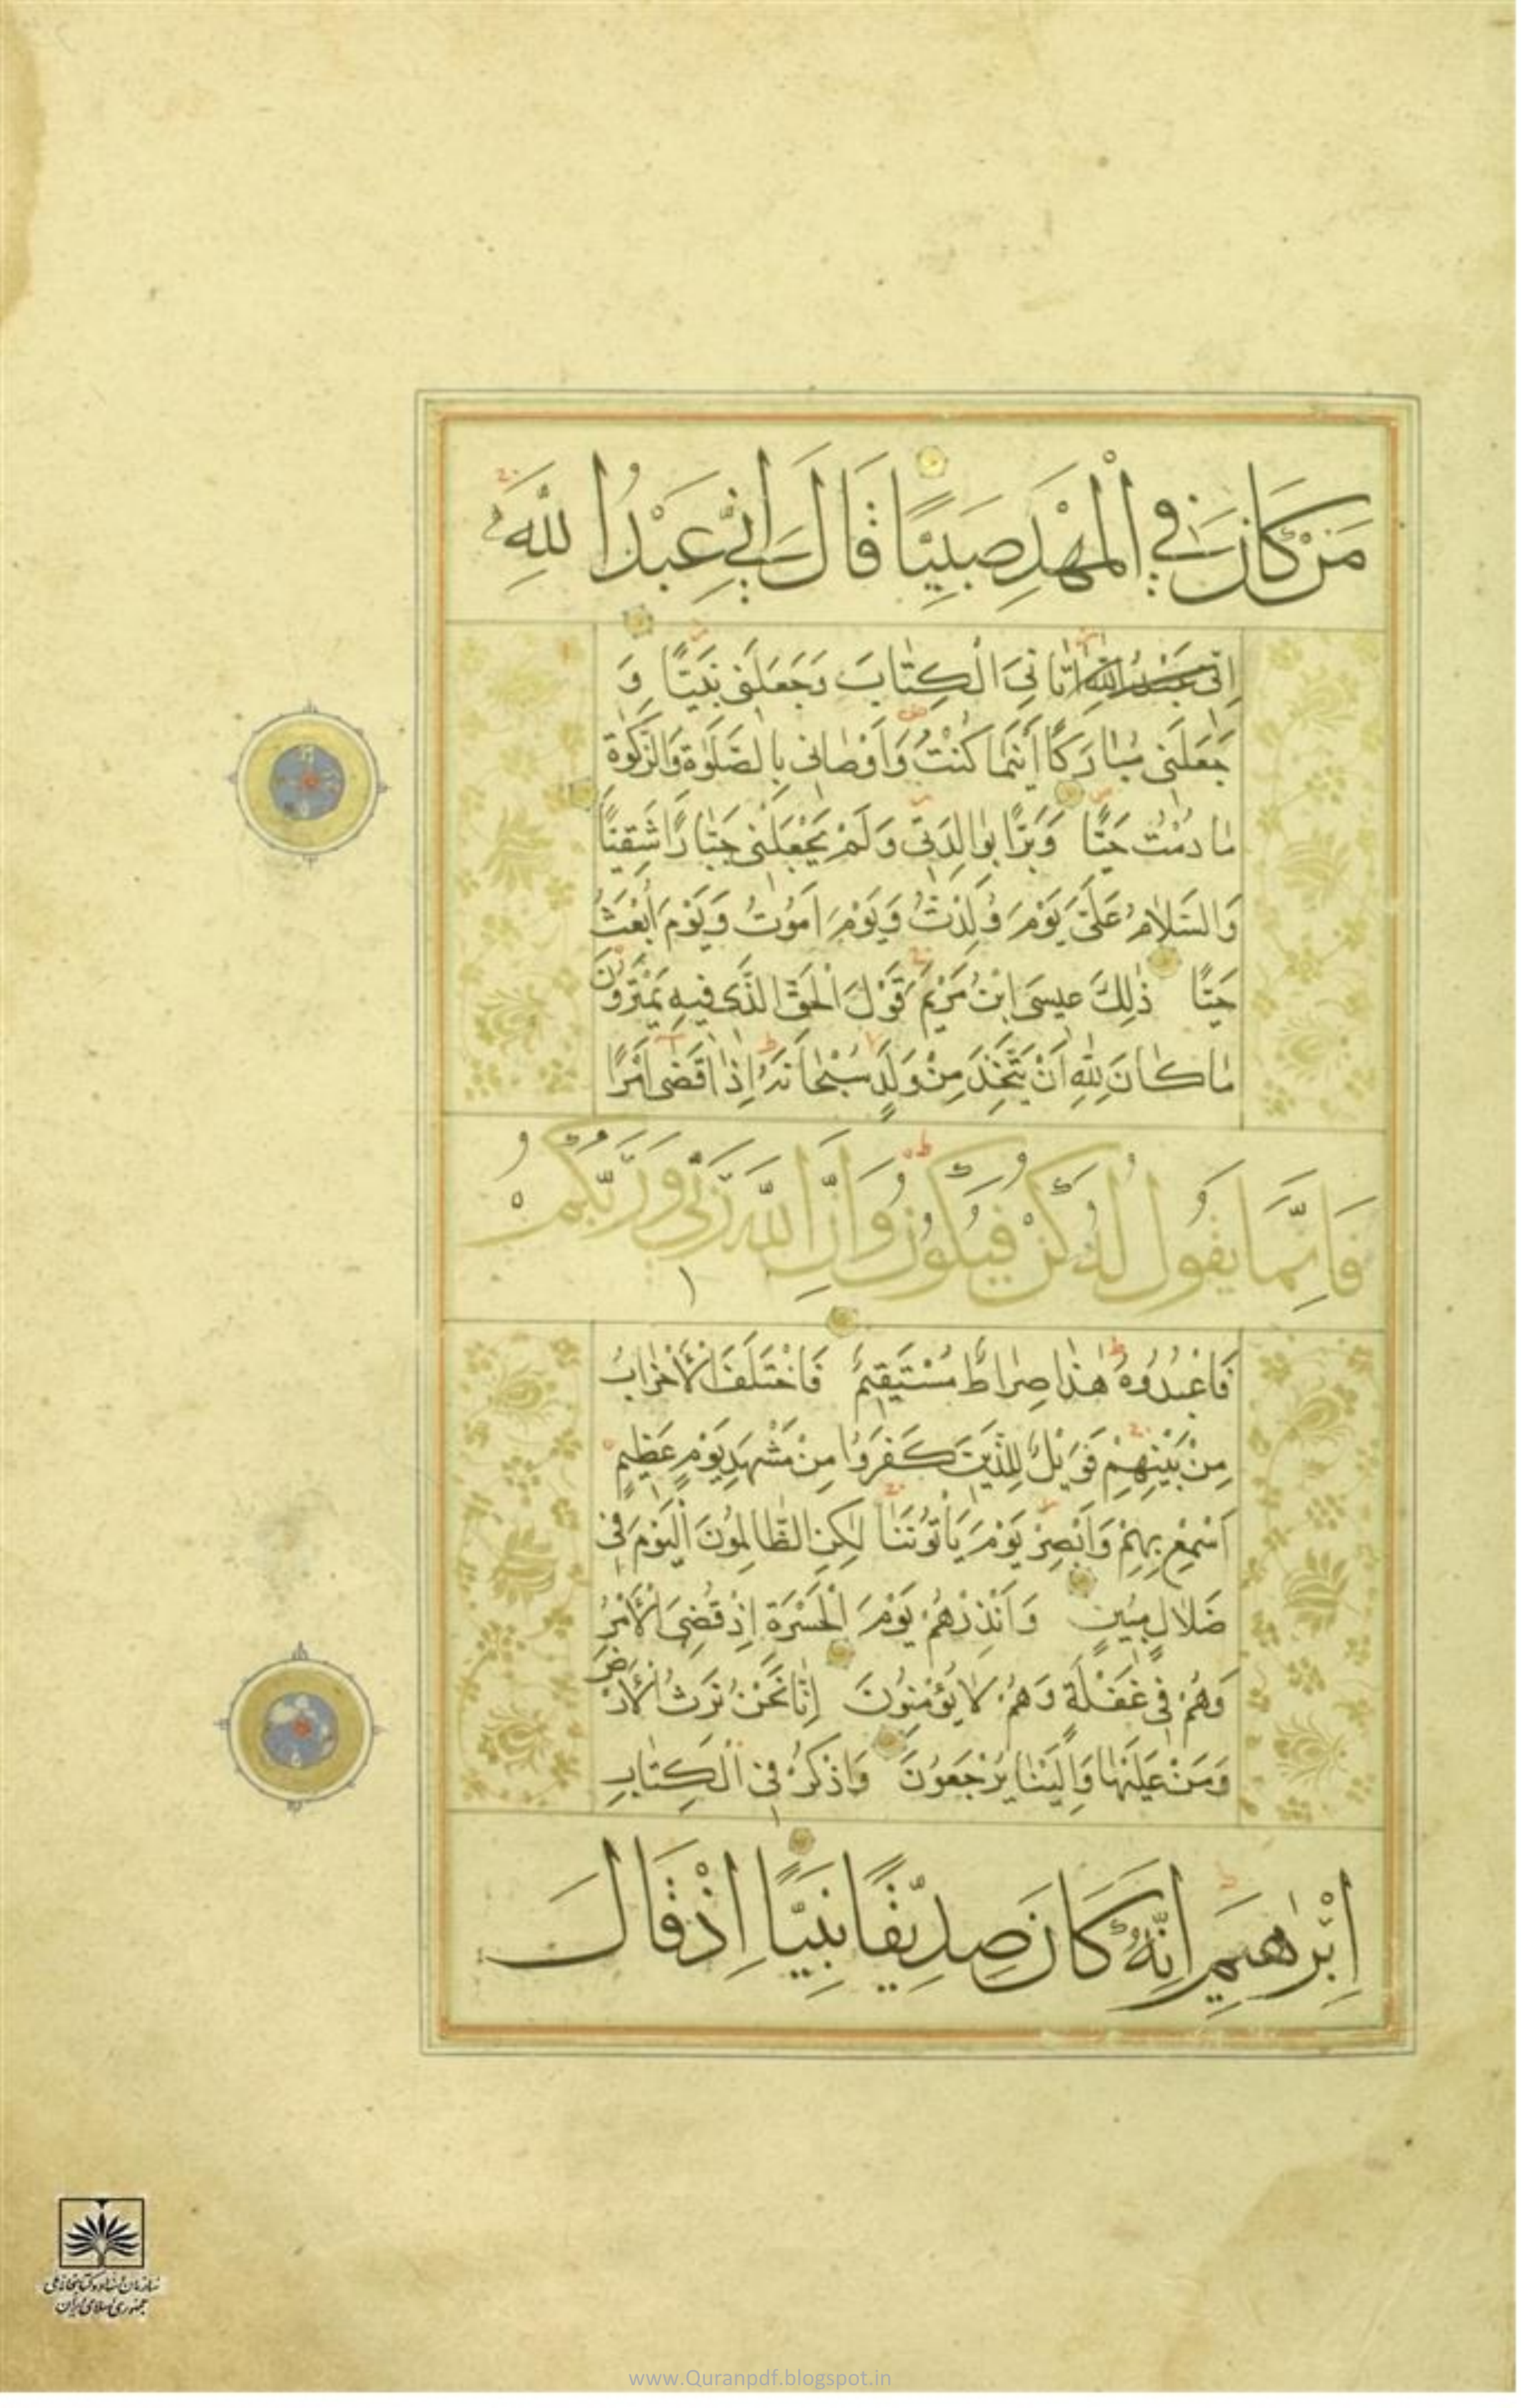 مَنْ كَانَ فِي الْمَهْدِ صَبِيًّا قَالَ اِنِّي عَبْدُ اللَّهِ
اِنّى عَبْدُ اللهِ اٰتَانِىَ الْكِتٰابَ وَجَعَلَنى نَبِيًّا وَ
جَعَلَنى مُبٰارَكًا اَيْنَمٰا كُنْتُ وَاَوْصٰانى بِالصَّلٰوةِ وَالزَّكٰوةِ
مٰا دُمْتُ حَيًّا وَبَرًّا بِوٰالِدَتى وَلَمْ يَجْعَلْنى جَبّٰارًا شَقِيًّا
وَالسَّلٰامُ عَلَىَّ يَوْمَ وُلِدْتُ وَيَوْمَ اَمُوتُ وَيَوْمَ اُبْعَثُ
حَيًّا ذٰلِكَ عيسَى ابْنُ مَرْيَمَ قَوْلَ الْحَقِّ الَّذى فيهِ يَمْتَرُونَ
مٰا كٰانَ لِلّٰهِ اَنْ يَتَّخِذَ مِنْ وَلَدٍ سُبْحٰانَهُ اِذٰا قَضٰى اَمْرًا
فَاِنَّمَا يَقُولُ لَهُ كُنْ فَيَكُونُ وَاِنَّ اللَّهَ رَبِّي وَرَبُّكُمْ
فَاعْبُدُوهُ هٰذٰا صِرٰاطٌ مُسْتَقيمٌ فَاخْتَلَفَ الْاَحْزٰابُ
مِنْ بَيْنِهِمْ فَوَيْلٌ لِلَّذينَ كَفَرُوا مِنْ مَشْهَدِ يَوْمٍ عَظيمٍ
اَسْمِعْ بِهِمْ وَاَبْصِرْ يَوْمَ يَأْتُونَنٰا لٰكِنِ الظّٰالِمُونَ الْيَوْمَ فى
ضَلٰالٍ مُبينٍ وَاَنْذِرْهُمْ يَوْمَ الْحَسْرَةِ اِذْ قُضِىَ الْاَمْرُ
وَهُمْ فى غَفْلَةٍ وَهُمْ لٰا يُؤْمِنُونَ اِنّٰا نَحْنُ نَرِثُ الْاَرْضَ
وَمَنْ عَلَيْهٰا وَاِلَيْنٰا يُرْجَعُونَ وَاذْكُرْ فِى الْكِتٰابِ
اِبْرٰهيمَ اِنَّهُ كَانَ صِدِّيقًا نَبِيًّا اِذْ قَالَ
سازمان اسناد و کتابخانه ملی
جمهوری اسلامی ایران
www.Quranpdf.blogspot.in